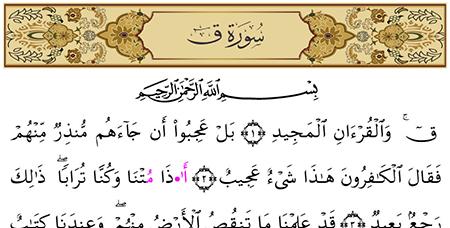 سُورَةُ ق
بِسْمِ ٱللَّهِ ٱلرَّحْمَٰنِ ٱلرَّحِيمِ
قٓۚ وَٱلْقُرْءَانِ ٱلْمَجِيدِ ﴿١﴾ بَلْ عَجِبُوٓا۟ أَن جَآءَهُم مُّنذِرٌ مِّنْهُمْ
فَقَالَ ٱلْكَٰفِرُونَ هَٰذَا شَىْءٌ عَجِيبٌ ﴿٢﴾ أَ•ذَا مُتْنَا وَكُنَّا تُرَابًا ۖ ذَٰلِكَ
رَجْعٌۢ بَعِيدٌ ﴿٣﴾ قَدْ عَلِمْنَا مَا تَنقُصُ ٱلْأَرْضُ مِنْهُمْ ۖ وَعِندَنَا كِتَٰبٌ